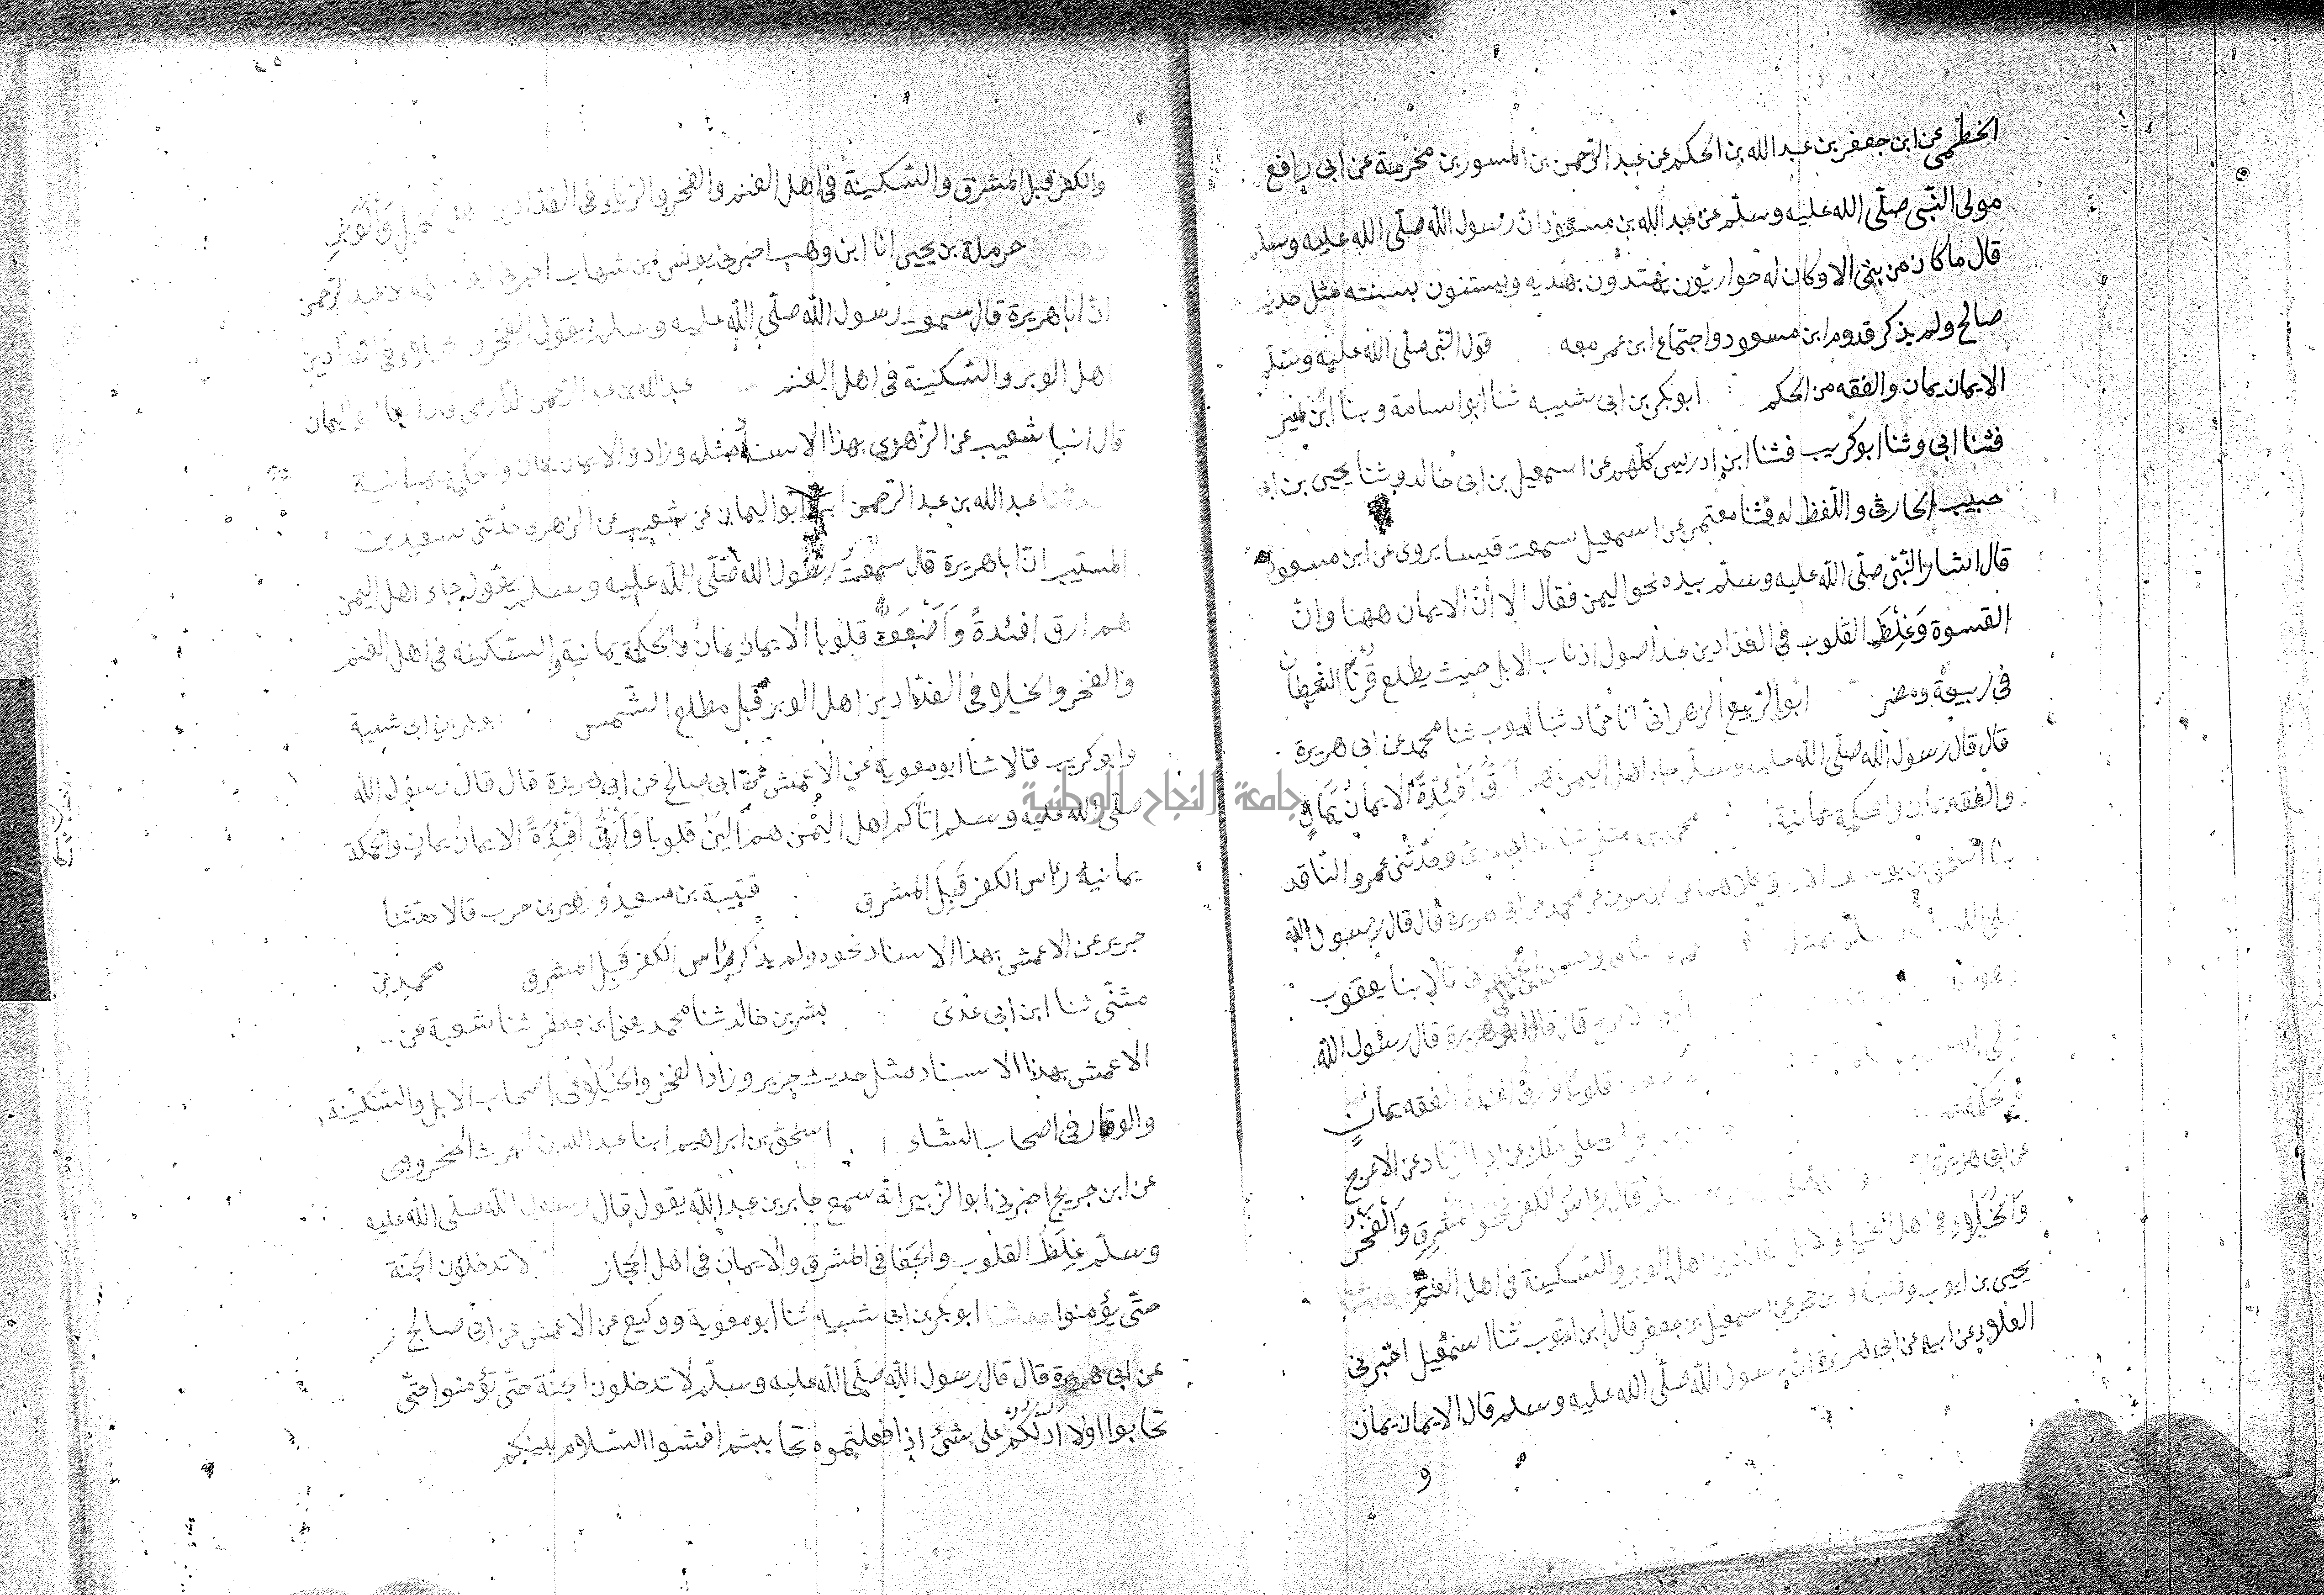 الخطمى عن ابن جعفر بن عبد الله بن الحكم عن عبد الرحمن بن المسور بن مخرمة عن ابى رافع
مولى النّبى صلّى الله عليه وسلّم عن عبد الله بن مسعود ان رسول الله صلّى الله عليه وسلم
قال ما كان من نبى الا وكان له حواريّون يهتدون بهديه ويستنون بسنته مثل حديث
صالح ولم يذكر قدوم ابن مسعود واجتماع ابن عمر معه قول النّبى صلّى الله عليه وسلم
الايمان يمان والفقه من الحكم ابو بكر بن ابى شيبه ثنا ابو اسامة وبنا ابن نمير
فثنا ابى وثنا ابو كريب فثنا ابن ادريس كلهم عن اسمعيل بن ابى خالد وثنا يحيى بن ابى
حبيب الحارثى واللّفظ له فثنا معتمر عن اسمعيل سمعت قيسا يروى عن ابن مسعود
قال اشار النّبى صلّى الله عليه وسلّم بيده نحو اليمن فقال الا أنّ الايمان ههنا وانّ
القسوة وَغِلَظَ القلوب فى الفدّادين عند اصول اذناب الابل حيث يطلع قرنا الشيطان
فى ربيعة ومضر ابو الربيع الزهرانى انا حمّاد ثنا ايوب ثنا محمد عن ابى هريرة
قال قال رسول الله صلّى الله عليه وسلّم جاء اهل اليمن هم اَرَقُّ اَفْئِدَةً الايمانُ يَمَانٍ
والفقه يمان والحكمة يمانية محمد بن مثنى ثنا ابن ابى عدى وحدّثنى عمرو النّاقد
بنا اسحق بن يوسف الازرق كلاهما عن ابن عون عن محمد عن ابى هريرة قال قال رسول الله
يعقوب
الاعرج قال قال ابو هريرة قال رسول الله
قلوبا وارق افئدة الفقه يمانٍ
على ملك عن ابى الزناد عن الاعرج
عن ابى هريرة قال رأس الكفر نحو المشرق وَالْفَخْر
وَالْخُيَلاء فى اهل الخيل والابل الفدادين اهل الوبر والسّكينة فى اهل الغنم حدثنا
يحيى بن ايوب وقتيبة وبن حجر عن اسمعيل بن جعفر قال ابن ايوب ثنا اسمعيل اخبرنى
العلاء عن ابيه عن ابى هريرة انّ رسول الله صلّى الله عليه وسلم قال الايمان يمان
و
والكفر قبل المشرق والسّكينة فى اهل الغنم والفخر والرّياء فى الفدّادين اهل الخيل وَالْوَبَرِ
حرملة بن يحيى انا ابن وهب اخبرنى يونس بن شهاب اخبرنى ابو سلمة بن عبد الرّحمن
انّ ابا هريرة قال سمعت رسول الله صلّى الله عليه وسلم يقول الفخر والخيلاء فى الفدّادين
اهل الوبر والسّكينة فى اهل الغنم عبد الله بن عبد الرّحمن الدّارمى ابو اليمان
قال انبا شعيب عن الزّهرى بهذا الاسناد مثله وزاد والايمان يمان والحكمة يمانية
حدثنا عبد الله بن عبد الرّحمن ابو اليمان عن شعيب عن الزهرى حدّثنى سعيد بن
المسيّب انّ ابا هريرة قال سمعتُ رسول الله صلّى الله عليه وسلم يقول جاء اهل اليمن
هم ارق افئدةً وَاَضْعَفُ قلوبا الايمان يمان والحكمة يمانية والسّكينة فى اهل الغنم
والفخر والخيلا فى الفدّادين اهل الوبر قبل مطلع الشّمس ابو بكر بن ابى شيبة
وابو كريب قالا ثنا ابو معوية عن الاعمش عن ابى صالح عن ابى هريرة قال قال رسول الله
صلّى الله عليه وسلم اتاكم اهل اليمن هم اَلْيَنُ قلوبًا وَاَرَقُّ اَفْئِدَةً الايمان يمان والحكمة
يمانية رأس الكفر قِبَلَ المشرق قتيبة بن سعيد وزهير بن حرب قالا حدّثنا
جرير عن الاعمش بهذا الاسناد نحوه ولم يذكر رأس الكفر قِبَل المشرق محمد بن
مثنّى ثنا ابن ابى عدى بشر بن خالد ثنا محمد يعنى ابن جعفر ثنا شعبة عن
الاعمش بهذا الاسناد مثل حديث جرير وزاد الفخر والخيلاء فى اصحاب الابل والسّكينة
والوقار فى اصحاب الشّاء اسحق بن ابراهيم ابنا عبد الله بن الحرث المخزومى
عن ابن جريج اخبرنى ابو الزّبير انّه سمع جابر بن عبد الله يقول قال رسول الله صلّى الله عليه
وسلّم غِلَظُ القلوب والجَفا فى المشرق والايمان فى اهل الحجاز لا تدخلون الجنّة
حتّى يؤمنوا حدثنا ابو بكر بن ابى شيبه ثنا ابو معوية ووكيع عن الاعمش عن ابى صالح
عن ابى هريرة قال قال رسول الله صلّى الله عليه وسلّم لا تدخلون الجنّة حتّى تؤمنوا حتّى
تحابوا اولا اَدُلّكُمْ على شئ اذا فعلتموه تحاببتم افشوا السّلام بينكم
جامعة النجاح الوطنية